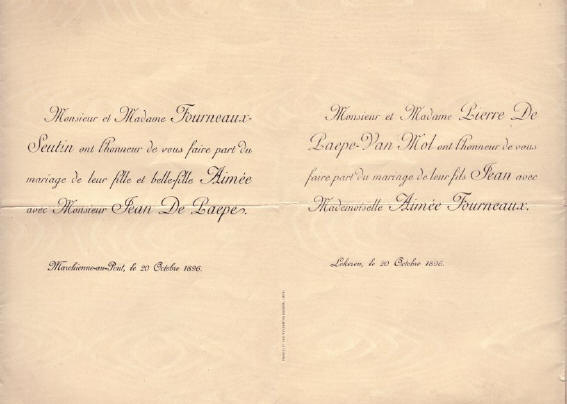 Monsieur et Madame Fourneaux-
Seutin ont l'honneur de vous faire part du
mariage de leur fille et belle-fille Aimée
avec Monsieur Jean De Paepe.
Marchienne-au-Pont, le 20 Octobre 1896.
Monsieur et Madame Pierre De
Paepe-Van Mol ont l'honneur de vous
faire part du mariage de leur fils Jean avec
Mademoiselle Aimée Fourneaux.
Lokeren, le 20 Octobre 1896.